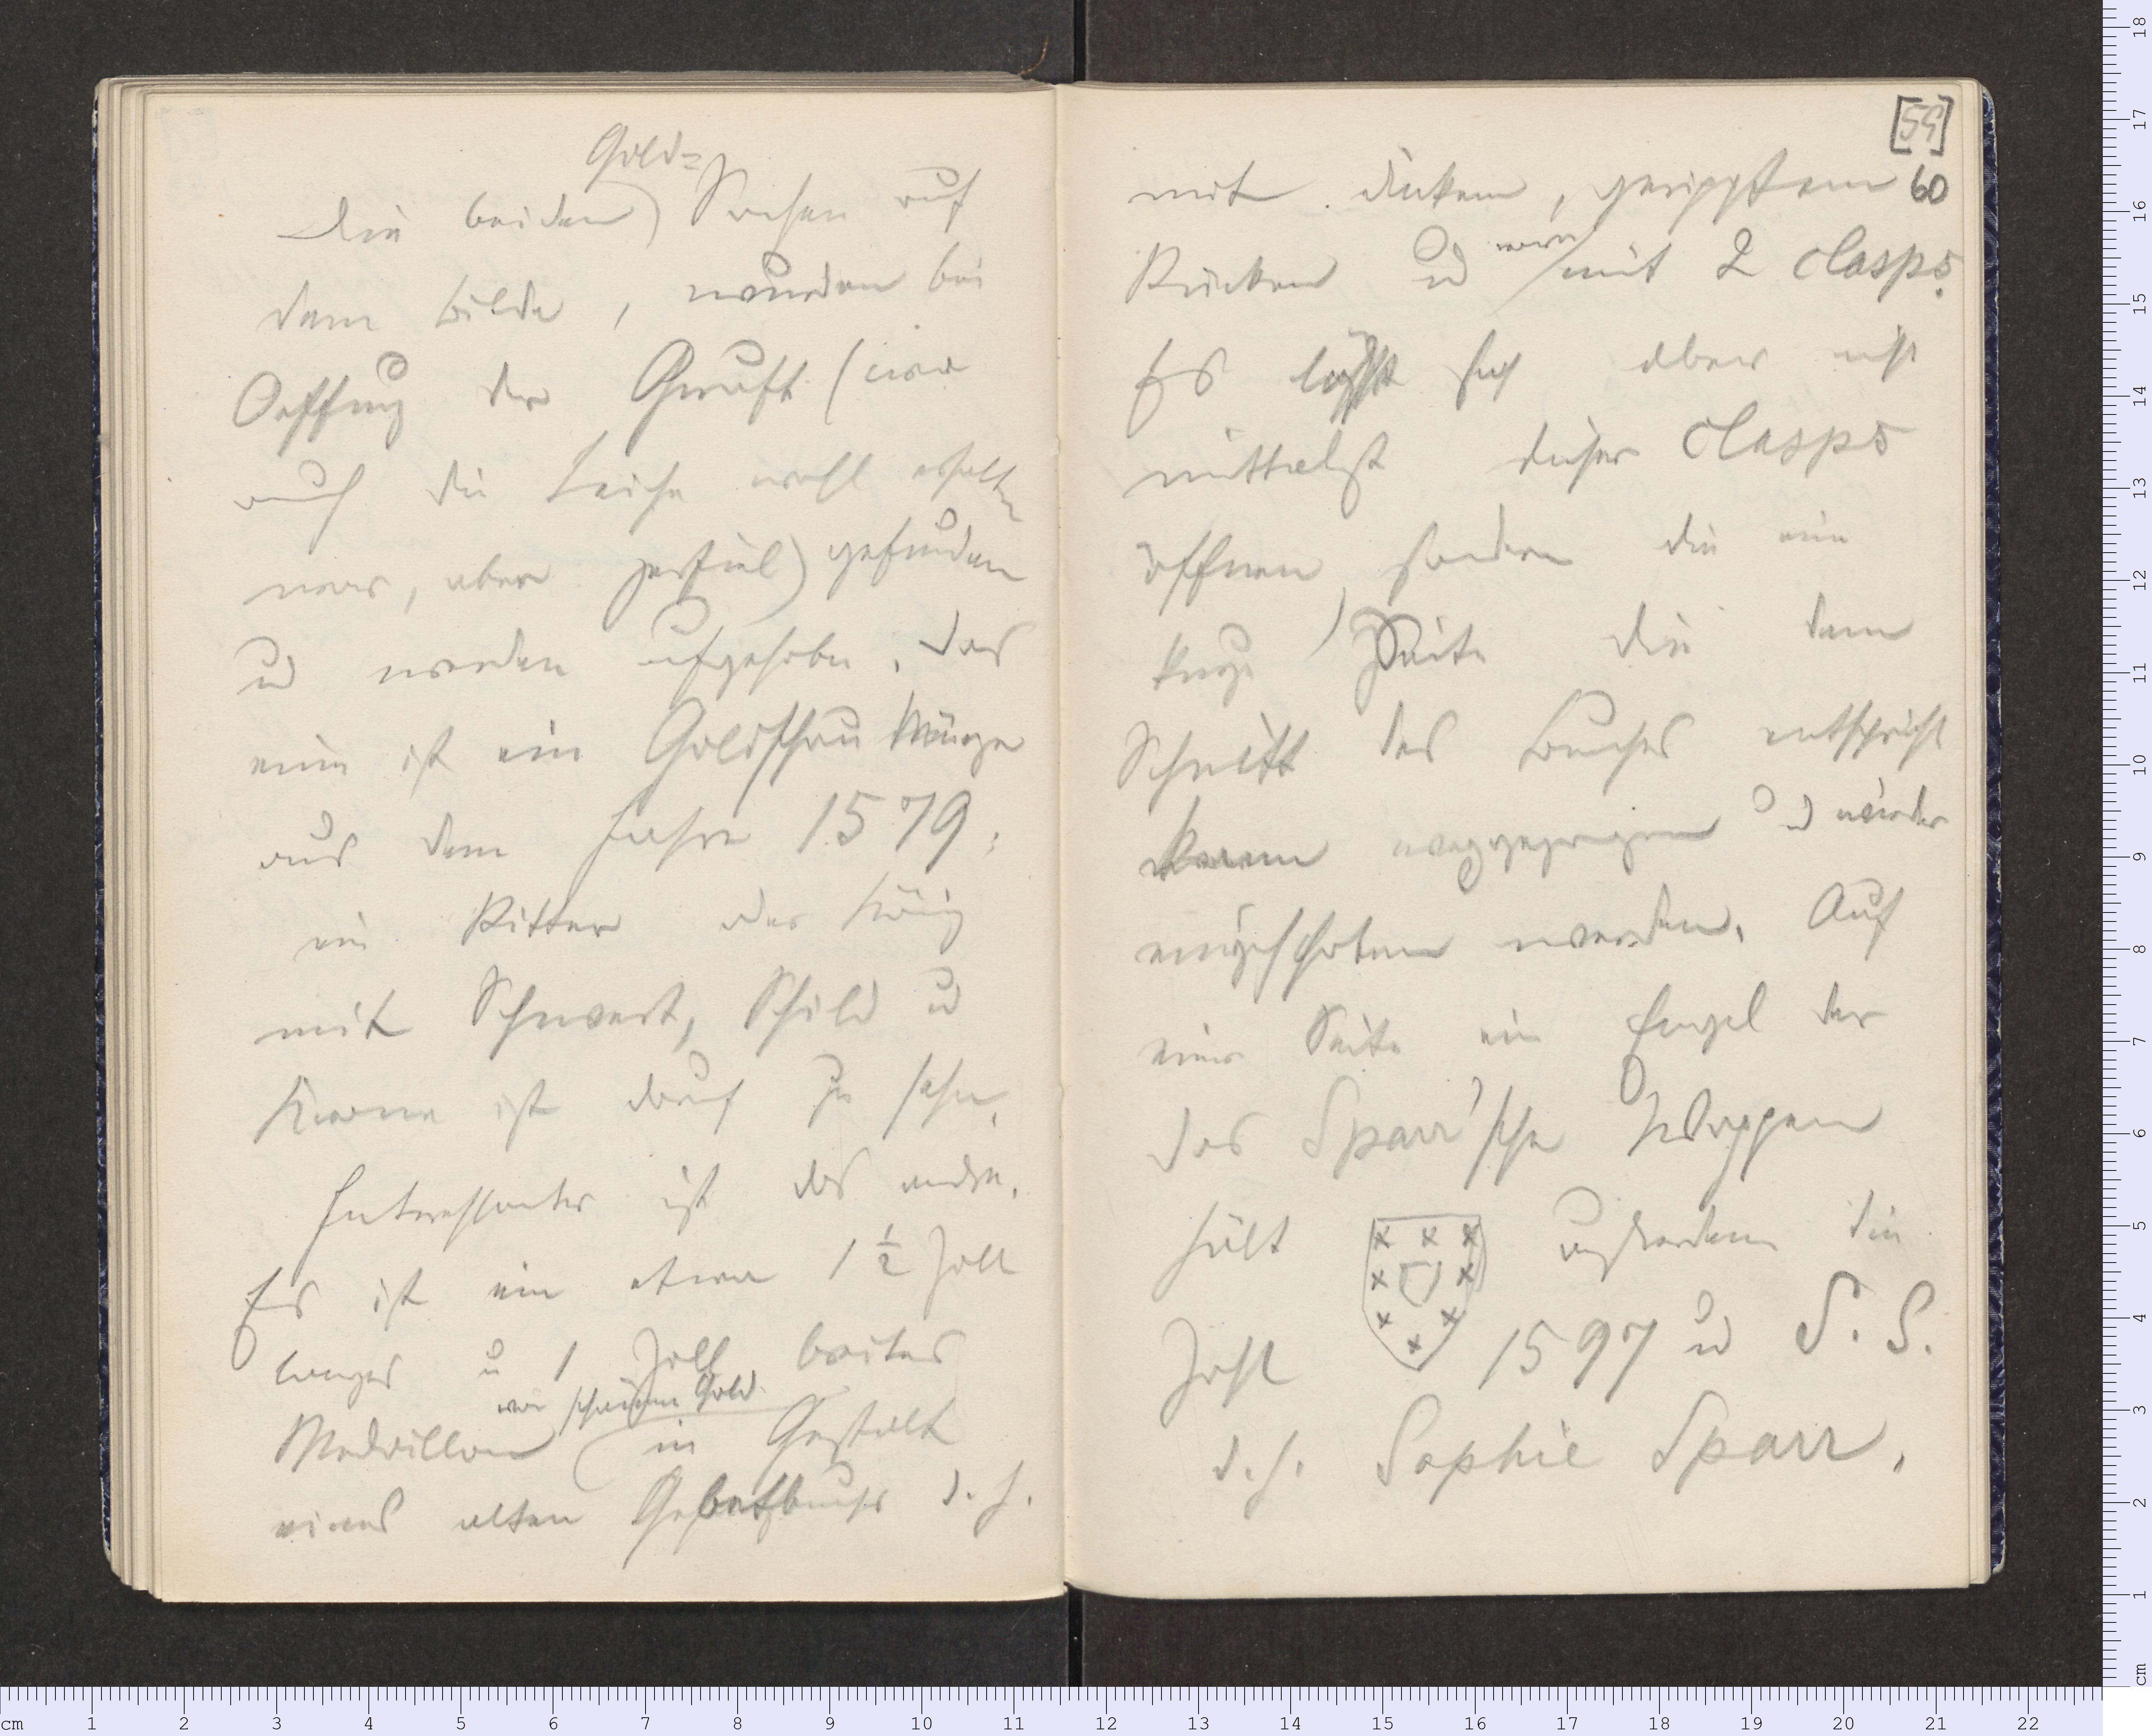 Gold=
Die beiden) Sachen auf
dem Bilde, wurden bei
Oeffnung der Gruft (wo
auch die Leiche wohl erhalten
war, aber zerfiel) gefunden
u werden aufgehoben. Das
eine ist eine Goldschau Münze
aus dem Jahre 1579;
ein Ritter oder König
mit Schwert, Schild u
Krone ist drauf zu sehn.
Interessanter ist das andre.
Es ist ein etwa 1 1/2 Zoll
langes u 1 Zoll breites
von schönem Gold
Medaillon in Gestalt
eines alten Gebetbuchs d. h.
[59]
60
mit dickem, geripptem
Rücken u vorn mit 2 Clasps.
Es läßt sich aber nicht
mittelst dieser Clasps
öffnen, sondern die eine
kurze Seite die dem
Schnitt des Buches entspricht
kann weggezogen u wieder
eingeschoben werden. Auf
einer Seite ein Engel der
das Sparr'sche Wappen
hält außerdem die
Zahl 1597 u S. S.
d. h. Sophie Sparr.